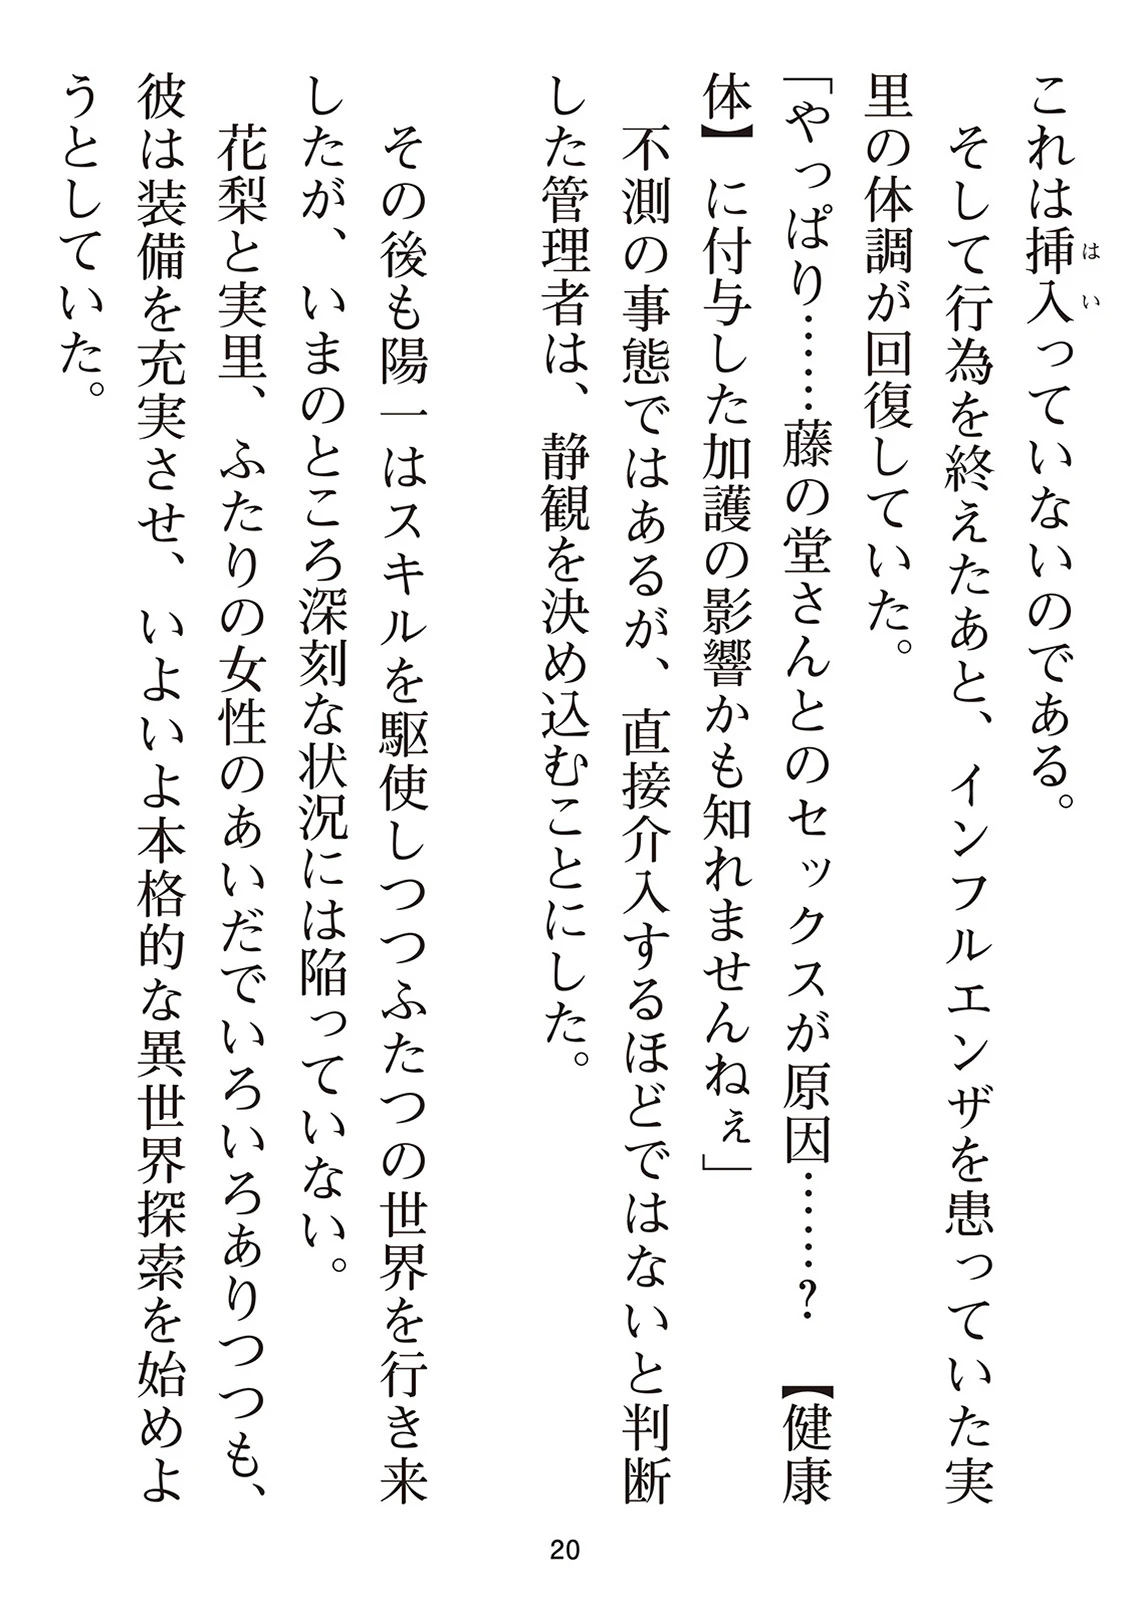 これは挿入っていないのである。
はい
そして行為を終えたあと、インフルエンザを患っていた実
里の体調が回復していた。
「やっぱり……藤の堂さんとのセックスが原因……？　【健康
体】に付与した加護の影響かも知れませんねぇ」
不測の事態ではあるが、直接介入するほどではないと判断
した管理者は、静観を決め込むことにした。
その後も陽一はスキルを駆使しつつふたつの世界を行き来
したが、いまのところ深刻な状況には陥っていない。
花梨と実里、ふたりの女性のあいだでいろいろありつつも、
彼は装備を充実させ、いよいよ本格的な異世界探索を始めよ
うとしていた。
20